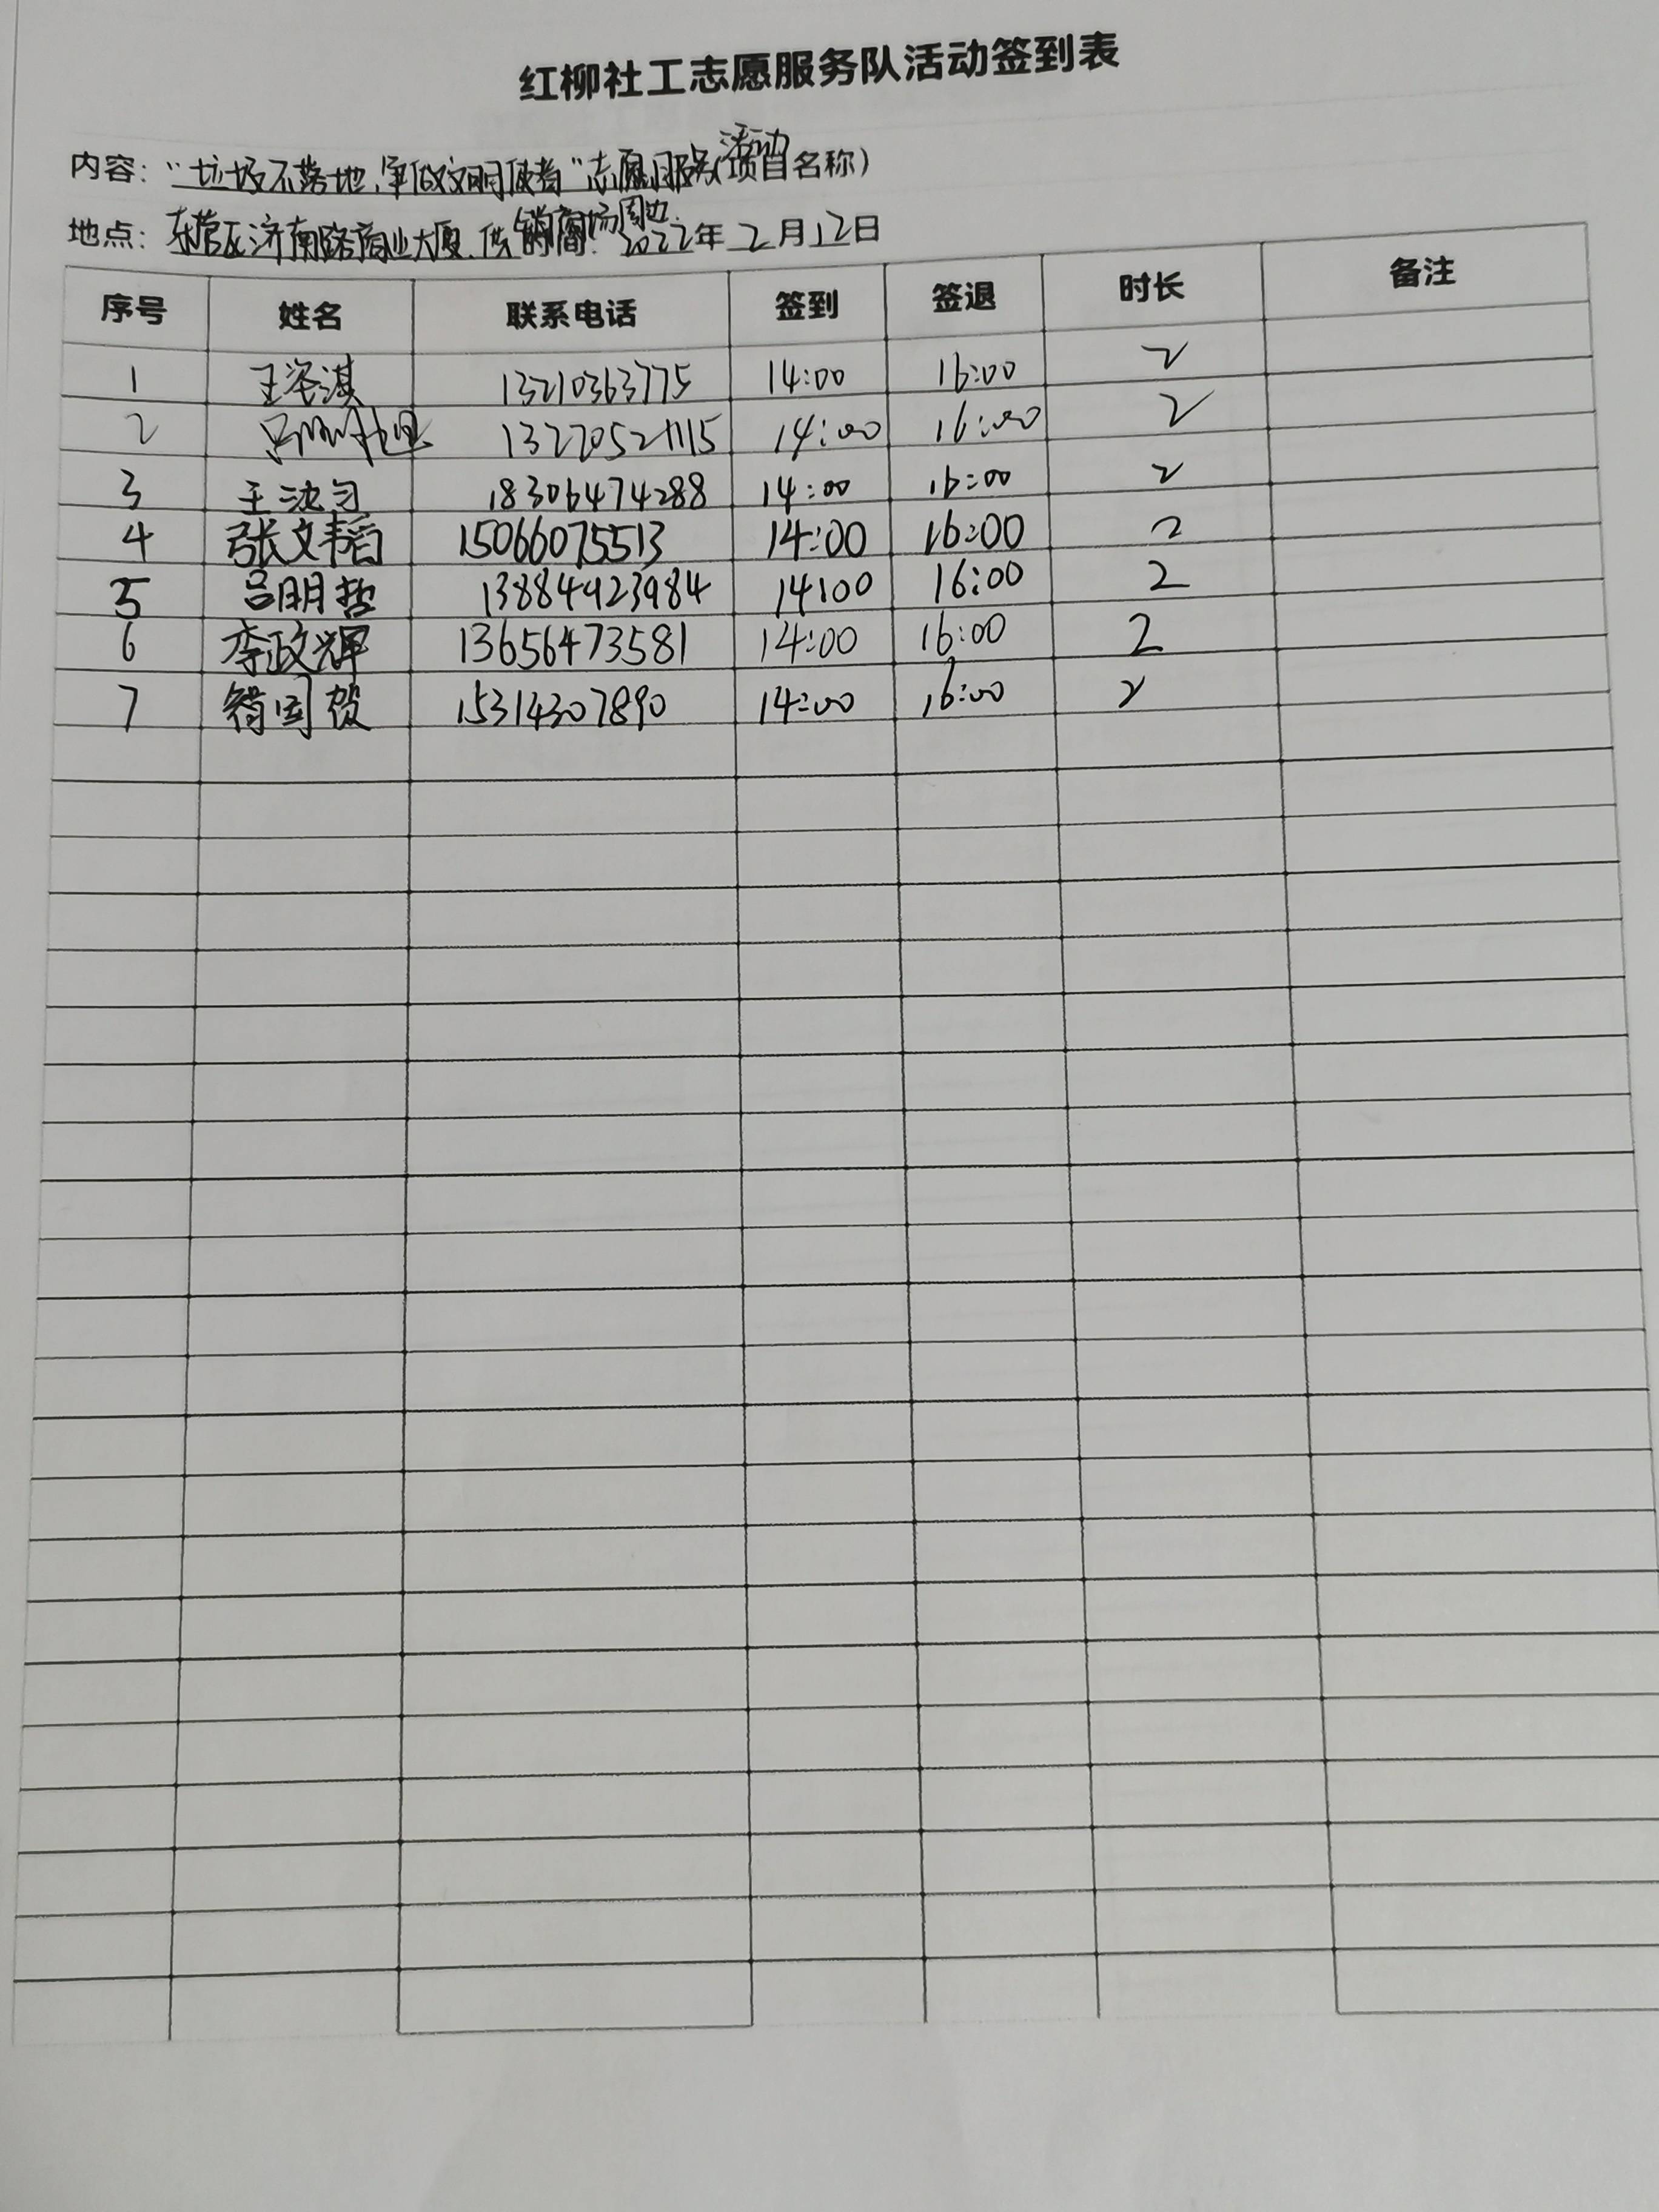 红柳社工志愿服务队活动签到表
内容：“垃圾不落地，争做文明使者”志愿服务活动（项目名称）
地点：东营区济南路商业大厦、供销商场周边 2022年2月12日
序号 姓名 联系电话 签到 签退 时长 备注
1 王姿淇 13210363775 14:00 16:00 2
2 13270521115 14:00 16:00 2
3 王沈匀 18306474288 14:00 16:00 2
4 张文韬 15066075513 14:00 16:00 2
5 吕明哲 13884923984 14:00 16:00 2
6 李政辉 13656473581 14:00 16:00 2
7 国贺 15314307890 14:00 16:00 2